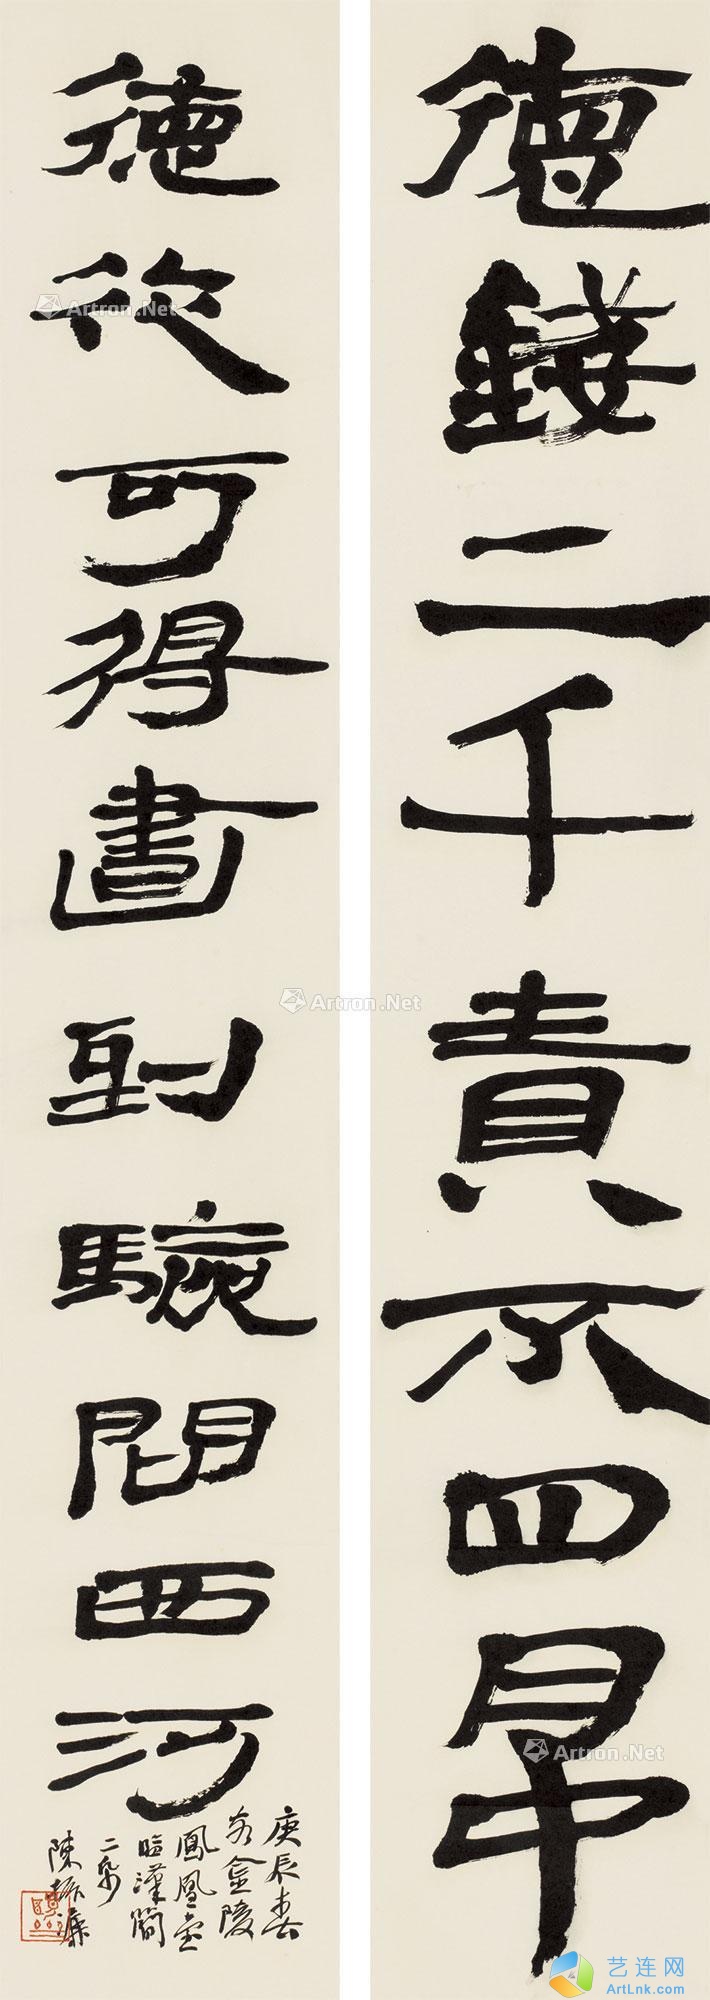 德錢二千責不四
德從可得畫到驗問西河
庚辰春
客金陵
鳳凰臺
臨漢簡
二條
陳振濂
Artron.Net
Artron.Net
Artron.Net
艺连网
ArtLnk.com